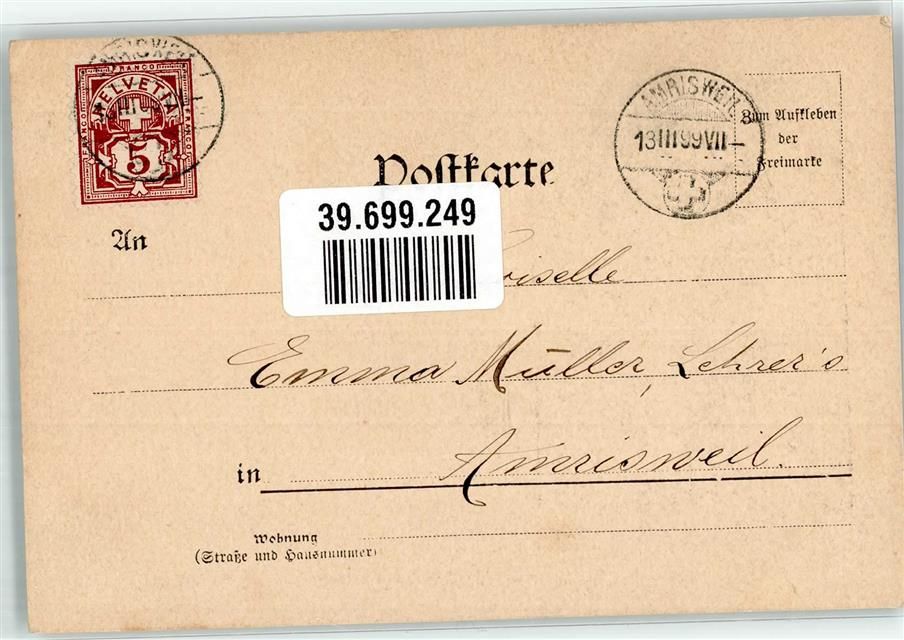 FRANCO
HELVETIA
FRANCO
FRANCO
5
AMRISWEIL
13 III 99 VII –
Zum Aufkleben
der
Freimarke
Postkarte
39.699.249
An
Emma Müller, Lehrer's
in Amrisweil.
Wohnung
(Straße und Hausnummer)